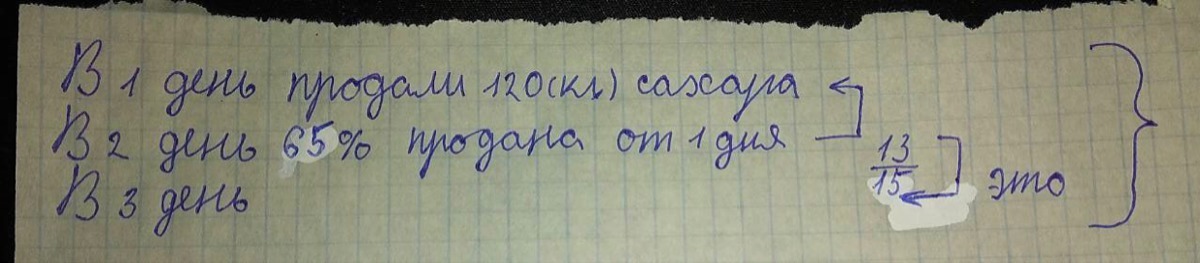 В 1 день продали 120(кг) сахара
В 2 день 65% продана от 1 дня
13/15 это
В 3 день